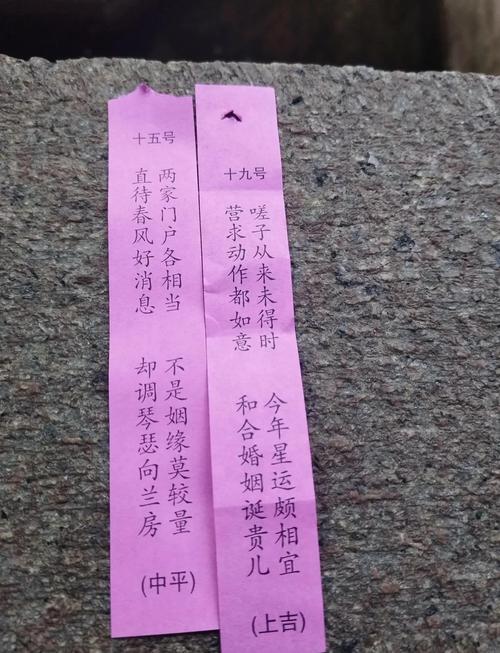 十五号
两家门户各相当
不是姻缘莫较量
直待春风好消息
却调琴瑟向兰房
(中平)
十九号
嗟子从来未得时
今年星运颇相宜
营求动作都如意
和合婚姻诞贵儿
(上吉)